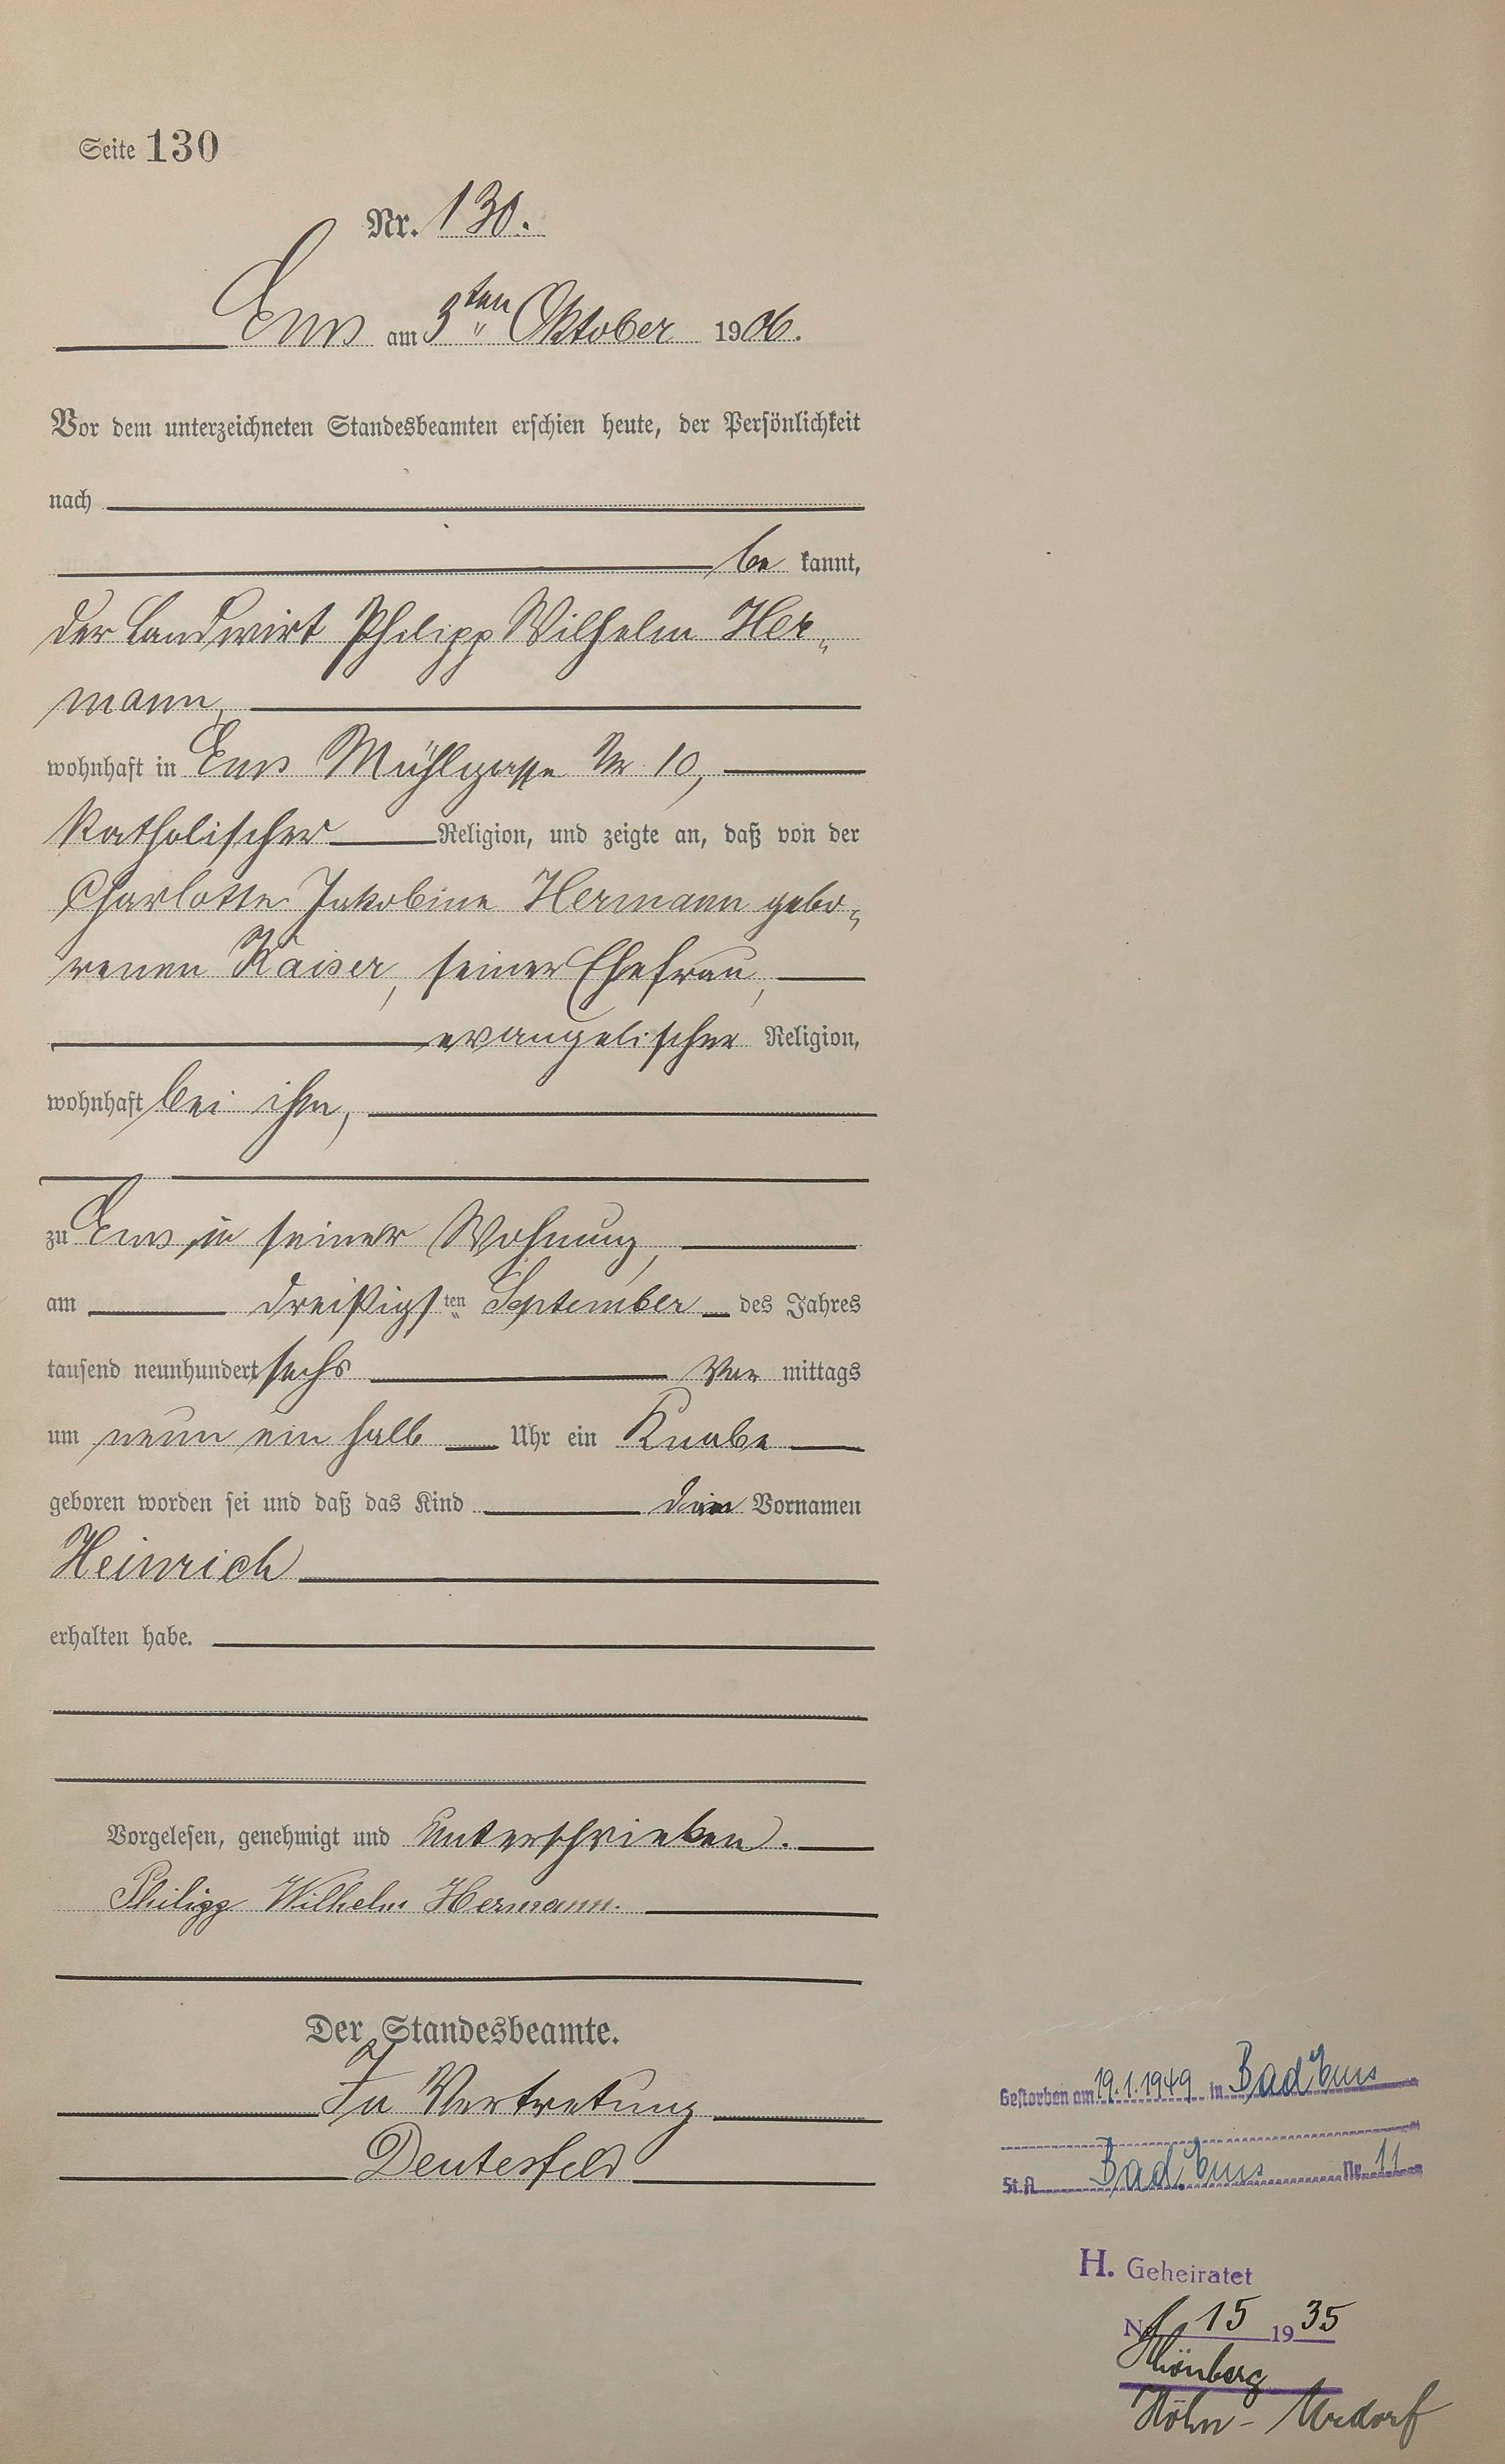 Seite 130
Nr. 130.
Ems am 3ten Oktober 1906.
Vor dem unterzeichneten Standesbeamten erschien heute, der Persönlichkeit
nach
be kannt,
der Landwirt Philipp Wilhelm Her-
mann,
wohnhaft in Ems Mühlgasse Nr 10,
katholischer Religion, und zeigte an, daß von der
Charlotte Jakobine Hermann gebo-
renen Kaiser, seiner Ehefrau,
evangelischer Religion,
wohnhaft bei ihm,
zu Ems in seiner Wohnung,
am dreißigsten September des Jahres
tausend neunhundert sechs Vor mittags
um neun ein halb Uhr ein Knabe
geboren worden sei und daß das Kind den Vornamen
Heinrich
erhalten habe.
Vorgelesen, genehmigt und unterschrieben.
Philipp Wilhelm Hermann.
Der Standesbeamte.
In Vertretung
Deutesfeld
Gestorben am 19.1.1949 in Bad Ems
St.A. Bad Ems Nr. 11
H. Geheiratet
Nr. 15 1935
Schönberg
Höhn-Urdorf